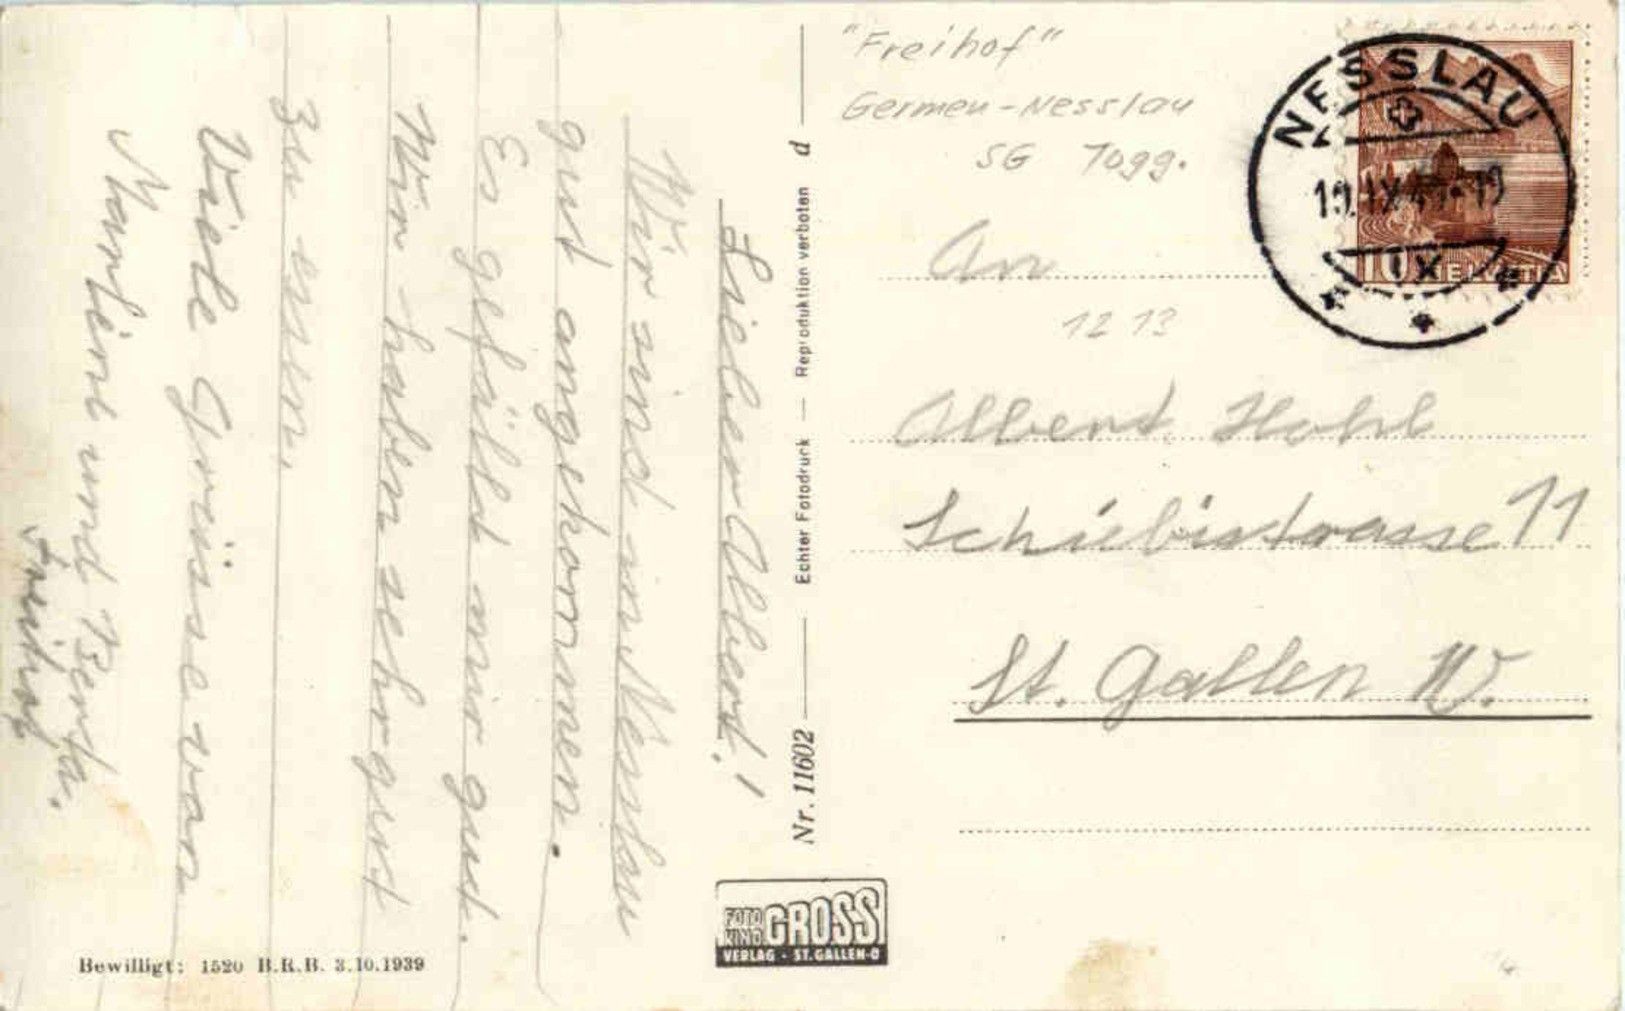 Lieber Albert!
Wir sind in Nesslau
gut angekommen.
Es gefällt mir gut.
Wir haben sehr gut
zu essen.
Viele Grüsse von
und Berta.
Bewilligt: 1520 B.R.B. 3.10.1939
Nr. 11602 — Echter Fotodruck — Reproduktion verboten — d
FOTO
KINO GROSS
VERLAG · ST. GALLEN-O
"Freihof"
Germen - Nesslau
SG Togg.
NESSLAU
IX
10 HELVETIA
An
12 13
Albert Hohl
Schiebistrasse 11
St. Gallen W.